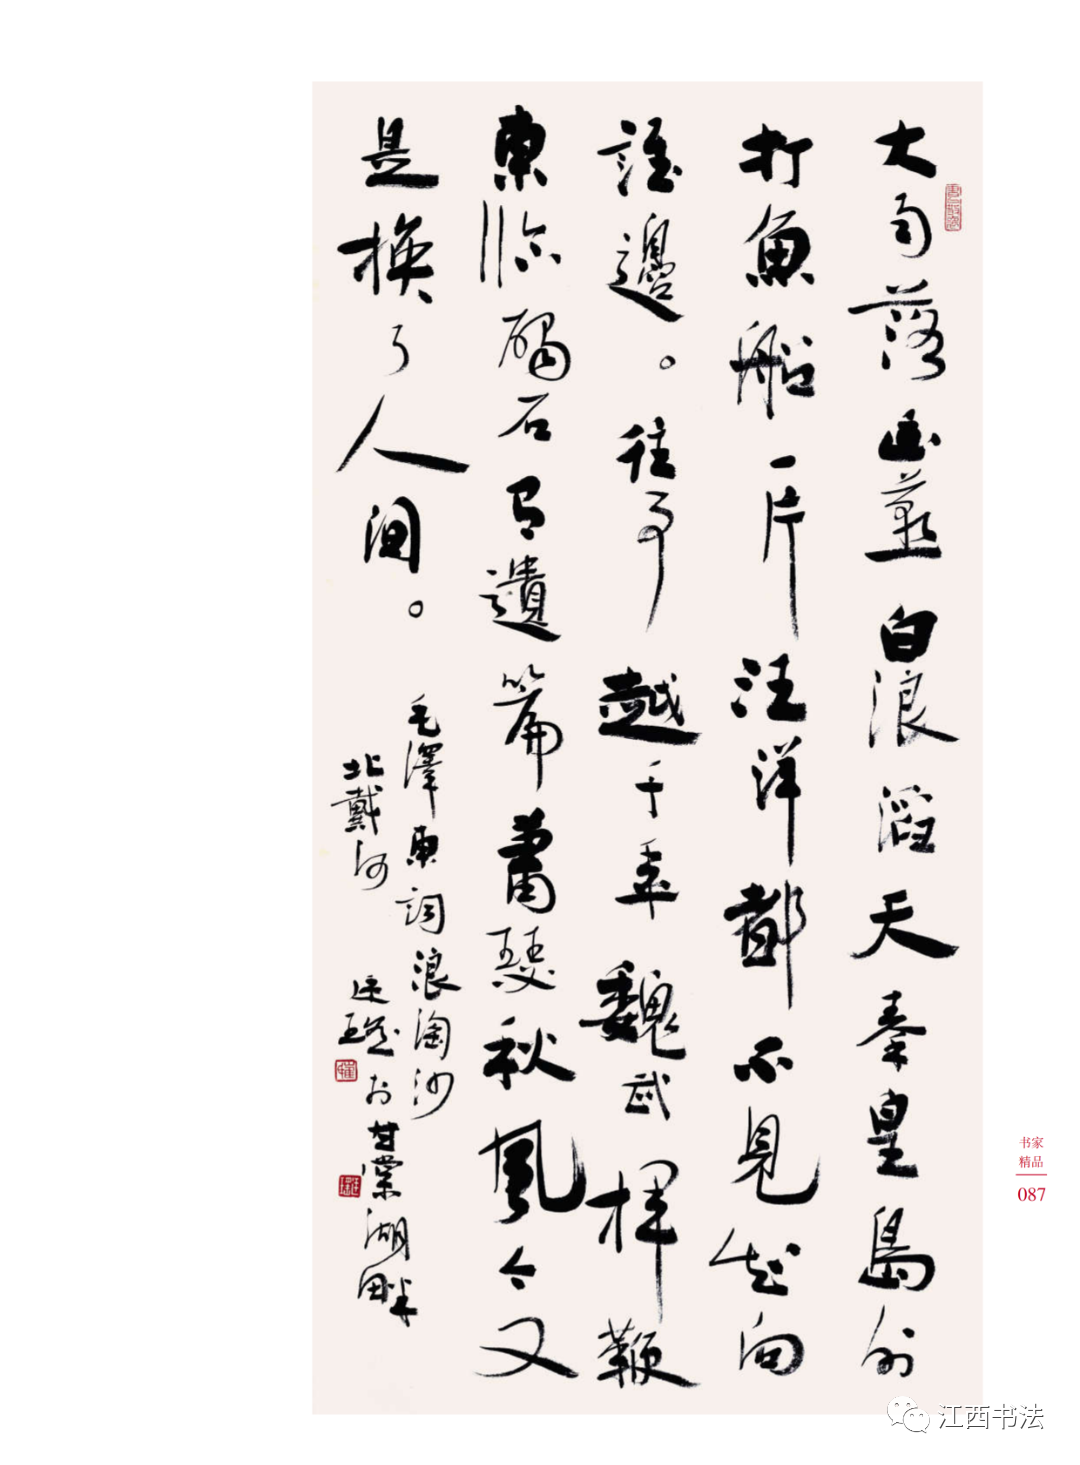 大雨落幽燕白浪滔天秦皇島外
打魚船一片汪洋都不見知向
誰邊。往事越千年魏武揮鞭
東临碣石有遺篇蕭瑟秋風今又
是換了人间。
毛澤東詞浪淘沙
北戴河
於甘棠湖畔
书家
精品
087
江西书法